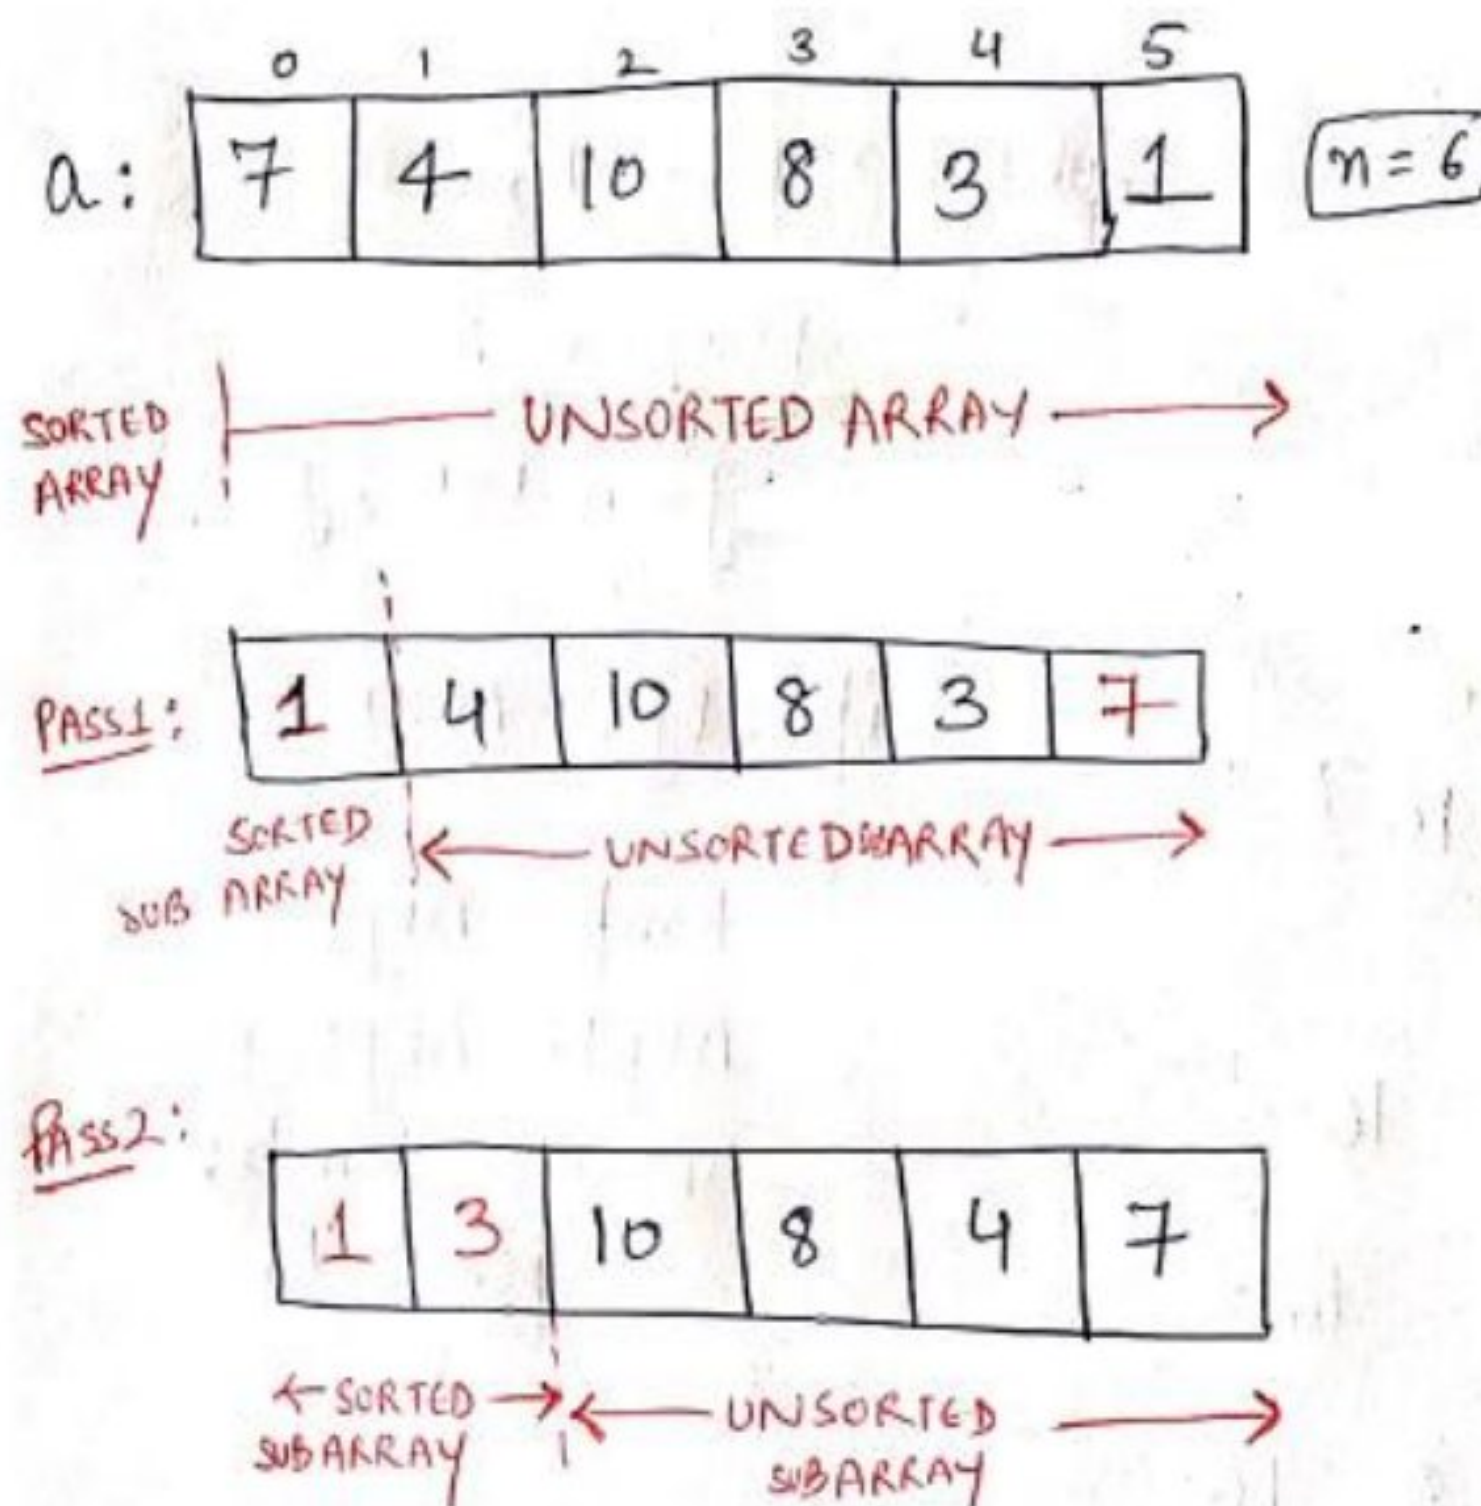 0 1 2 3 4 5
a: 7 4 10 8 3 1 n = 6
SORTED ARRAY
UNSORTED ARRAY
PASS1: 1 4 10 8 3 7
SORTED
SUB ARRAY
UNSORTED ARRAY
PASS2:
1 3 10 8 4 7
SORTED
SUBARRAY
UNSORTED
SUBARRAY